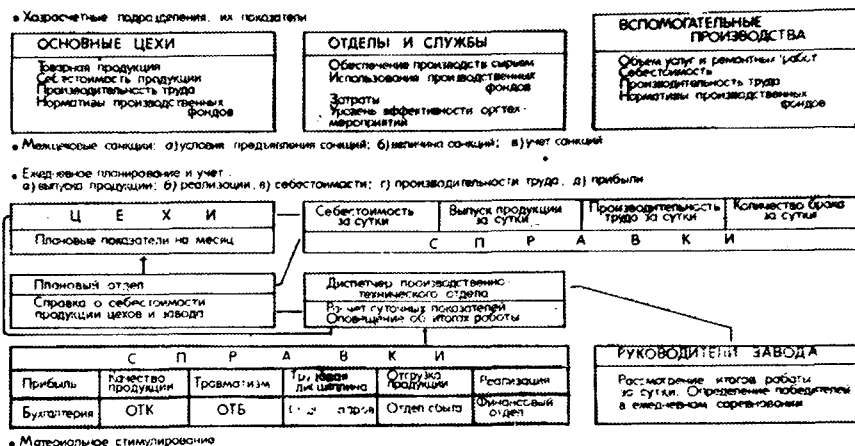 • Хозрасчетные подразделения, их показатели
ОСНОВНЫЕ ЦЕХИ
Товарная продукция
Себестоимость продукции
Производительность труда
Нормативы производственных
фондов
ОТДЕЛЫ И СЛУЖБЫ
Обеспечение производств сырьем
Использования производственных
фондов
Затраты
Уровень эффективности оргтех-
мероприятий
ВСПОМОГАТЕЛЬНЫЕ
ПРОИЗВОДСТВА
Объем услуг и ремонтных работ
Себестоимость
Производительность труда
Нормативы производственных
фондов
• Межцеховые санкции: а) условия предъявления санкций; б) величина санкций; в) учет санкций
• Ежедневное планирование и учет:
а) выпуска продукции; б) реализации, в) себестоимости; г) производительности труда, д) прибыли
ЦЕХИ
Плановые показатели на месяц
Себестоимость
за сутки
Выпуск продукции
за сутки
Производительность
труда за сутки
Количество брака
за сутки
СПРАВКИ
Плановый отдел
Справка о себестоимости
продукции цехов и завода
Диспетчер производственно-
технического отдела
Расчет суточных показателей
Оповещение об итогах работы
СПРАВКИ
Прибыль
Качество
продукции
Травматизм
Трудовая
дисциплина
Отгрузка
продукции
Реализация
Бухгалтерия
ОТК
ОТБ
Отдел сбыта
Финансовый
отдел
РУКОВОДИТЕЛИ ЗАВОДА
Рассмотрение итогов работы
за сутки. Определение победителей
в ежедневном соревновании
• Материальное стимулирование